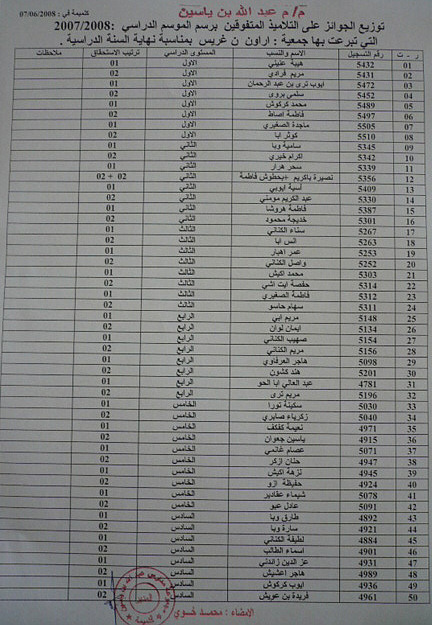 م/م عبد الله بن ياسين
كليميمة في : 07/06/2008
توزيع الجوائز على التلاميذ المتفوقين برسم الموسم الدراسي :2007/2008
التي تبرعت بها جمعية : اراون ن غريس بمناسبة نهاية السنة الدراسية .
ر - ت رقم التسجيل الاسم والنسب المستوى الدراسي ترتيب الاستحقاق ملاحظات
01 5432 هيبة عثيلي الاول 01
02 5431 مريم فرادي الاول 02
03 5472 ايوب نرى بن عبد الرحمان الاول 01
04 5452 سلمى بروى الاول 02
05 5489 محمد كركوش الاول 01
06 5497 فاطمة اضاط الاول 02
07 5505 ماجدة الصغيري الاول 01
08 5510 كوثر ابا الاول 02
09 5345 سامية وبا الثاني 01
10 5342 اكرام خيري الثاني 02
11 5339 سحر هرار الثاني 01
12 5356 نصيرة باكريم +بحطوش فاطمة الثاني 02 + 02
13 5409 آسية ايوبي الثاني 01
14 5330 عبد الكريم مومني الثاني 02
15 5387 فاطمة هروشا الثاني 01
16 5301 خديجة محمود الثاني 02
17 5267 سناء الكناني الثالث 01
18 5263 انس ابا الثالث 02
19 5253 عمر اهبار الثالث 01
20 5252 واصل الكناني الثالث 02
21 5303 محمد اكيش الثالث 01
22 5314 حفصة ايت اشي الثالث 02
23 5312 فاطمة الصغيري الثالث 01
24 5311 سهام حاسو الثالث 02
25 5148 مريم ابي الرابع 01
26 5134 ايمان لوان الرابع 02
27 5154 صهيب الكناني الرابع 01
28 5156 مريم الكناني الرابع 02
29 5098 هاجر العرفاوي الرابع 01
30 5201 هند كشون الرابع 02
31 4781 عبد العالي ابا الحو الرابع 01
32 5196 مريم نرى الرابع 02
33 5030 سكينة نورا الخامس 01
34 5040 زكرياء صابري الخامس 02
35 4971 نعيمة كفكف الخامس 01
36 4915 ياسين جعوان الخامس 02
37 5071 عصام غانمي الخامس 01
38 4947 حنان ازكر الخامس 02
39 4945 نزهة اكيش الخامس 01
40 4924 حفيظة ازو الخامس 02
41 5078 شيماء عقادير الخامس 01
42 5091 عادل عبو الخامس 02
43 4892 طارق وبا السادس 01
44 4921 سارة وبا السادس 02
45 4884 لطيفة الكناني السادس 01
46 4901 اسماء الطالب السادس 02
47 4931 عز الدين زاندني السادس 01
48 4989 هاجر اعشيش السادس 02
49 4936 ايوب كركوش السادس 01
50 4961 فريدة بن عويش السادس 02
المدير
الامضاء : محمد خسوي